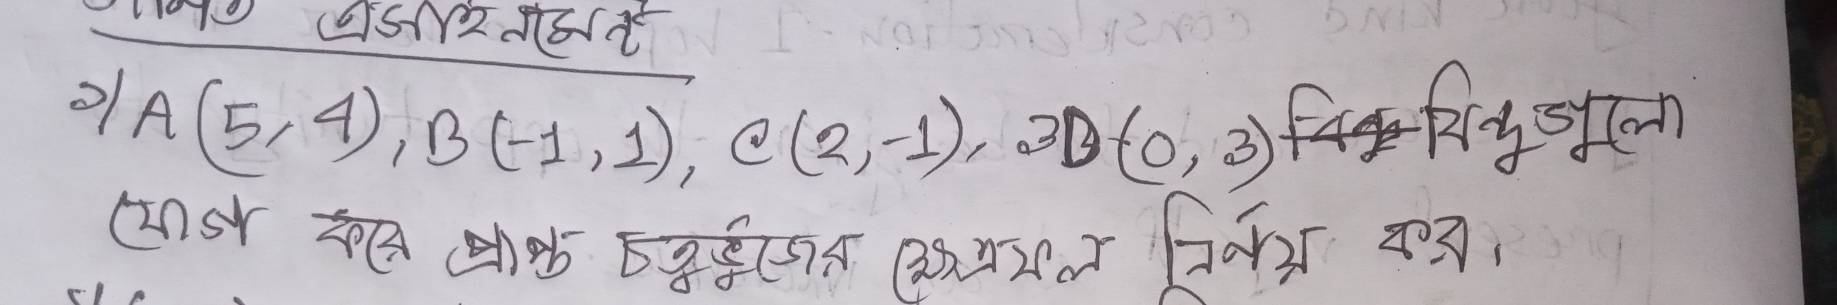 এসাইনমেন্ট
১/ A (5, 4), B (-1, 1), C (2, -1), ও D (0, 3) বিন্দুগুলো
যোগ করে প্রাপ্ত চতুর্ভুজের ক্ষেত্রফল নির্ণয় কর।